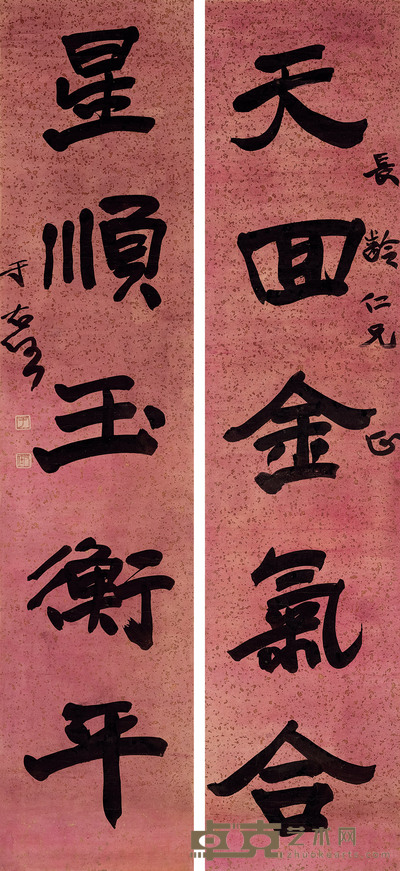 天回金氣合
長齡仁兄正
星順玉衡平
于右任
卓克艺术网
zhuokearts.com